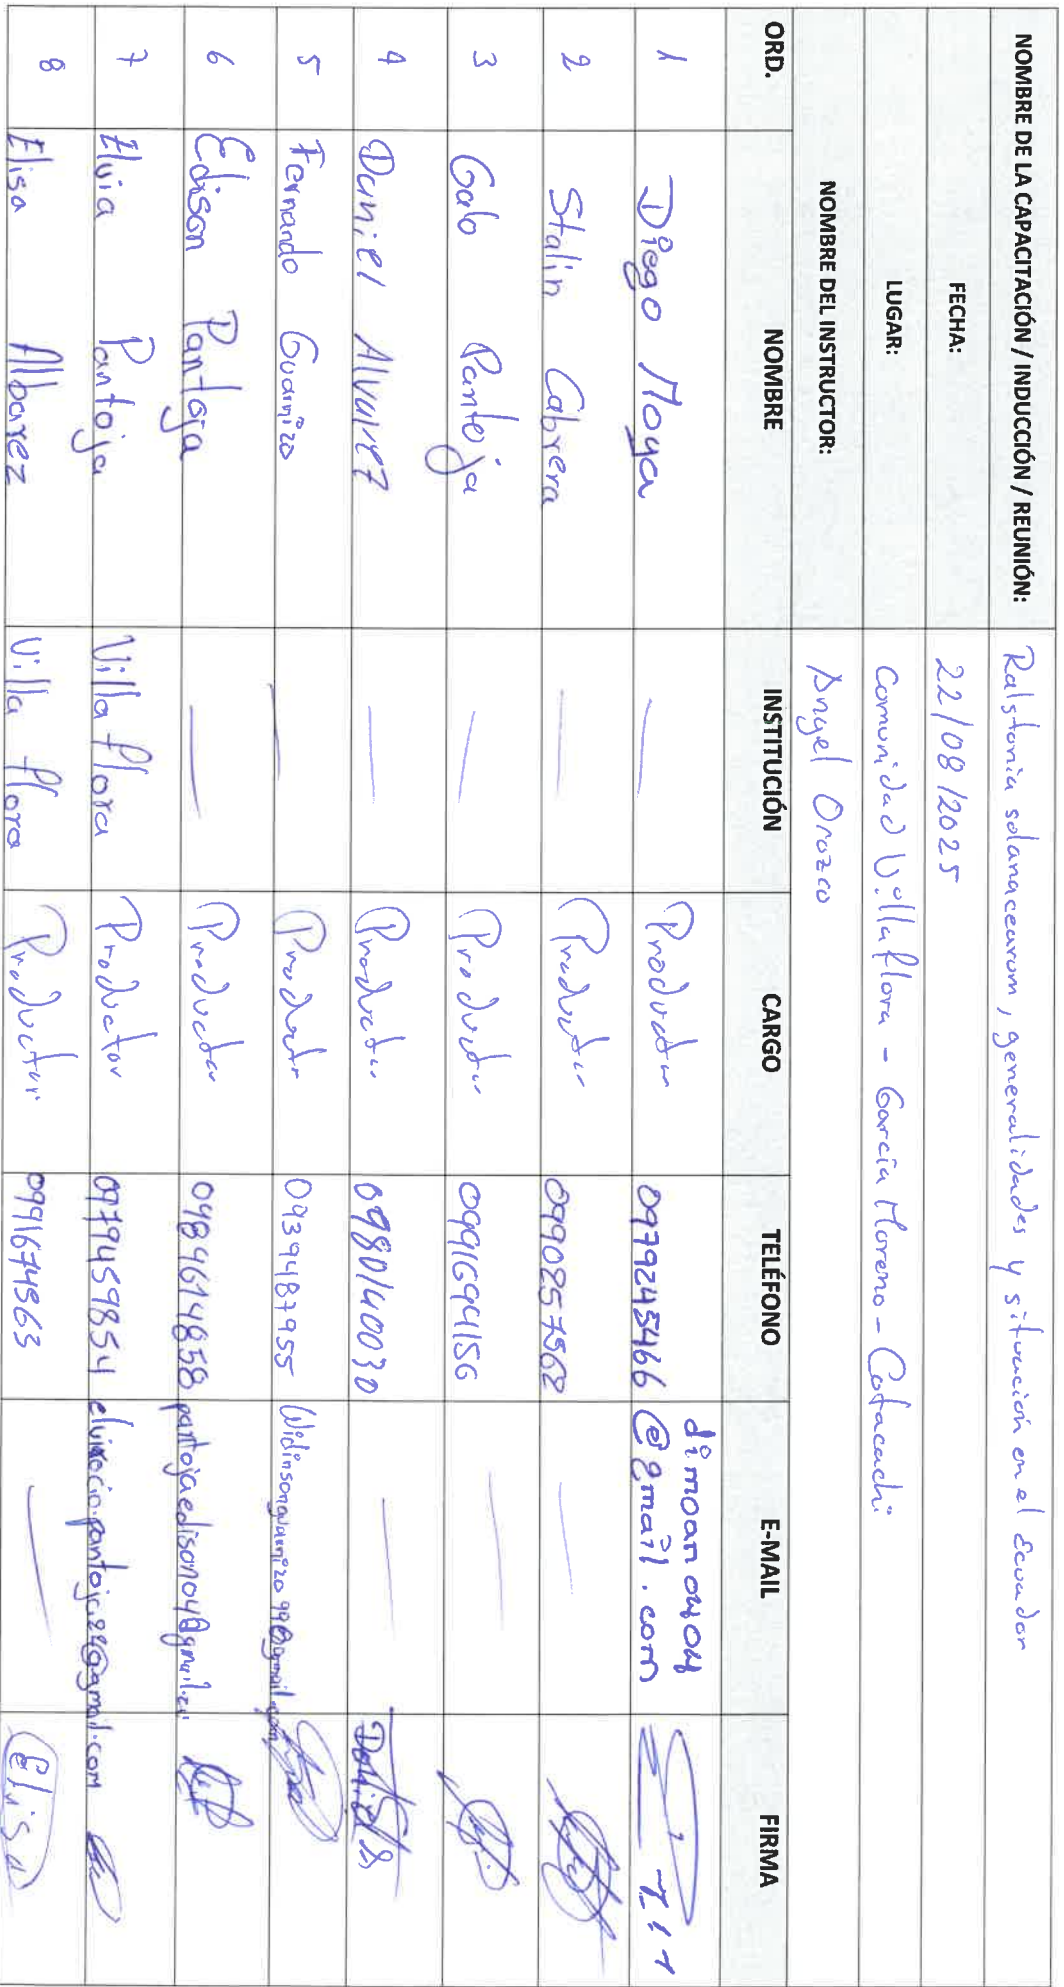 NOMBRE DE LA CAPACITACIÓN / INDUCCIÓN / REUNIÓN: Ralstonia solanacearum, generalidades y situación en el Ecuador
FECHA: 22/08/2025
LUGAR: Comunidad Villaflora - García Moreno - Cotacachi
NOMBRE DEL INSTRUCTOR: Angel Orozco
ORD. NOMBRE INSTITUCIÓN CARGO TELÉFONO E-MAIL FIRMA
1 Diego Moya — Productor 0979245466 dimoan0404@gmail.com
2 Stalin Cabrera — Productor 0990257562 —
3 Galo Pantoja — Productor 0991694156 —
4 Daniel Alvarez — Productor 0980140030 — Daniel
5 Fernando Guarnizo — Productor 0939487955 Widinsonguarnizo99@gmail.com
6 Edison Pantoja — Productor 0489614858 pantojaedison04@gmail.com
7 Elvia Pantoja Villa flora Productor 0979459854
8 Elisa Albarez Villa flora Productor 0991674563 — Elisa